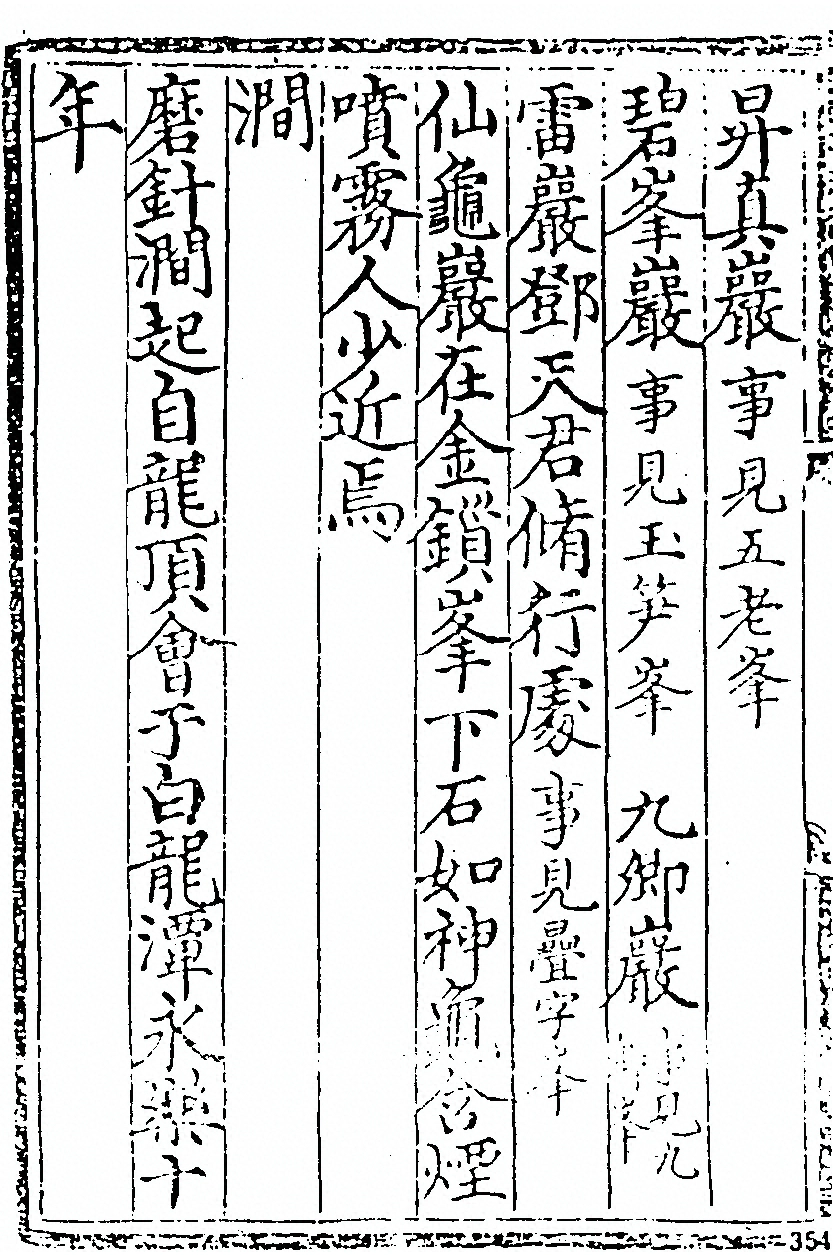 昇真巖事見五老峯
碧峯巖事見玉笋峯　九卿巖事見九卿峯
雷巖鄧天君脩行處事見疊字峯
仙龜巖在金鎖峯下石如神龜含煙
噴霧人少近焉
澗
磨針澗起自龍頂會于白龍潭永樂十
年
354